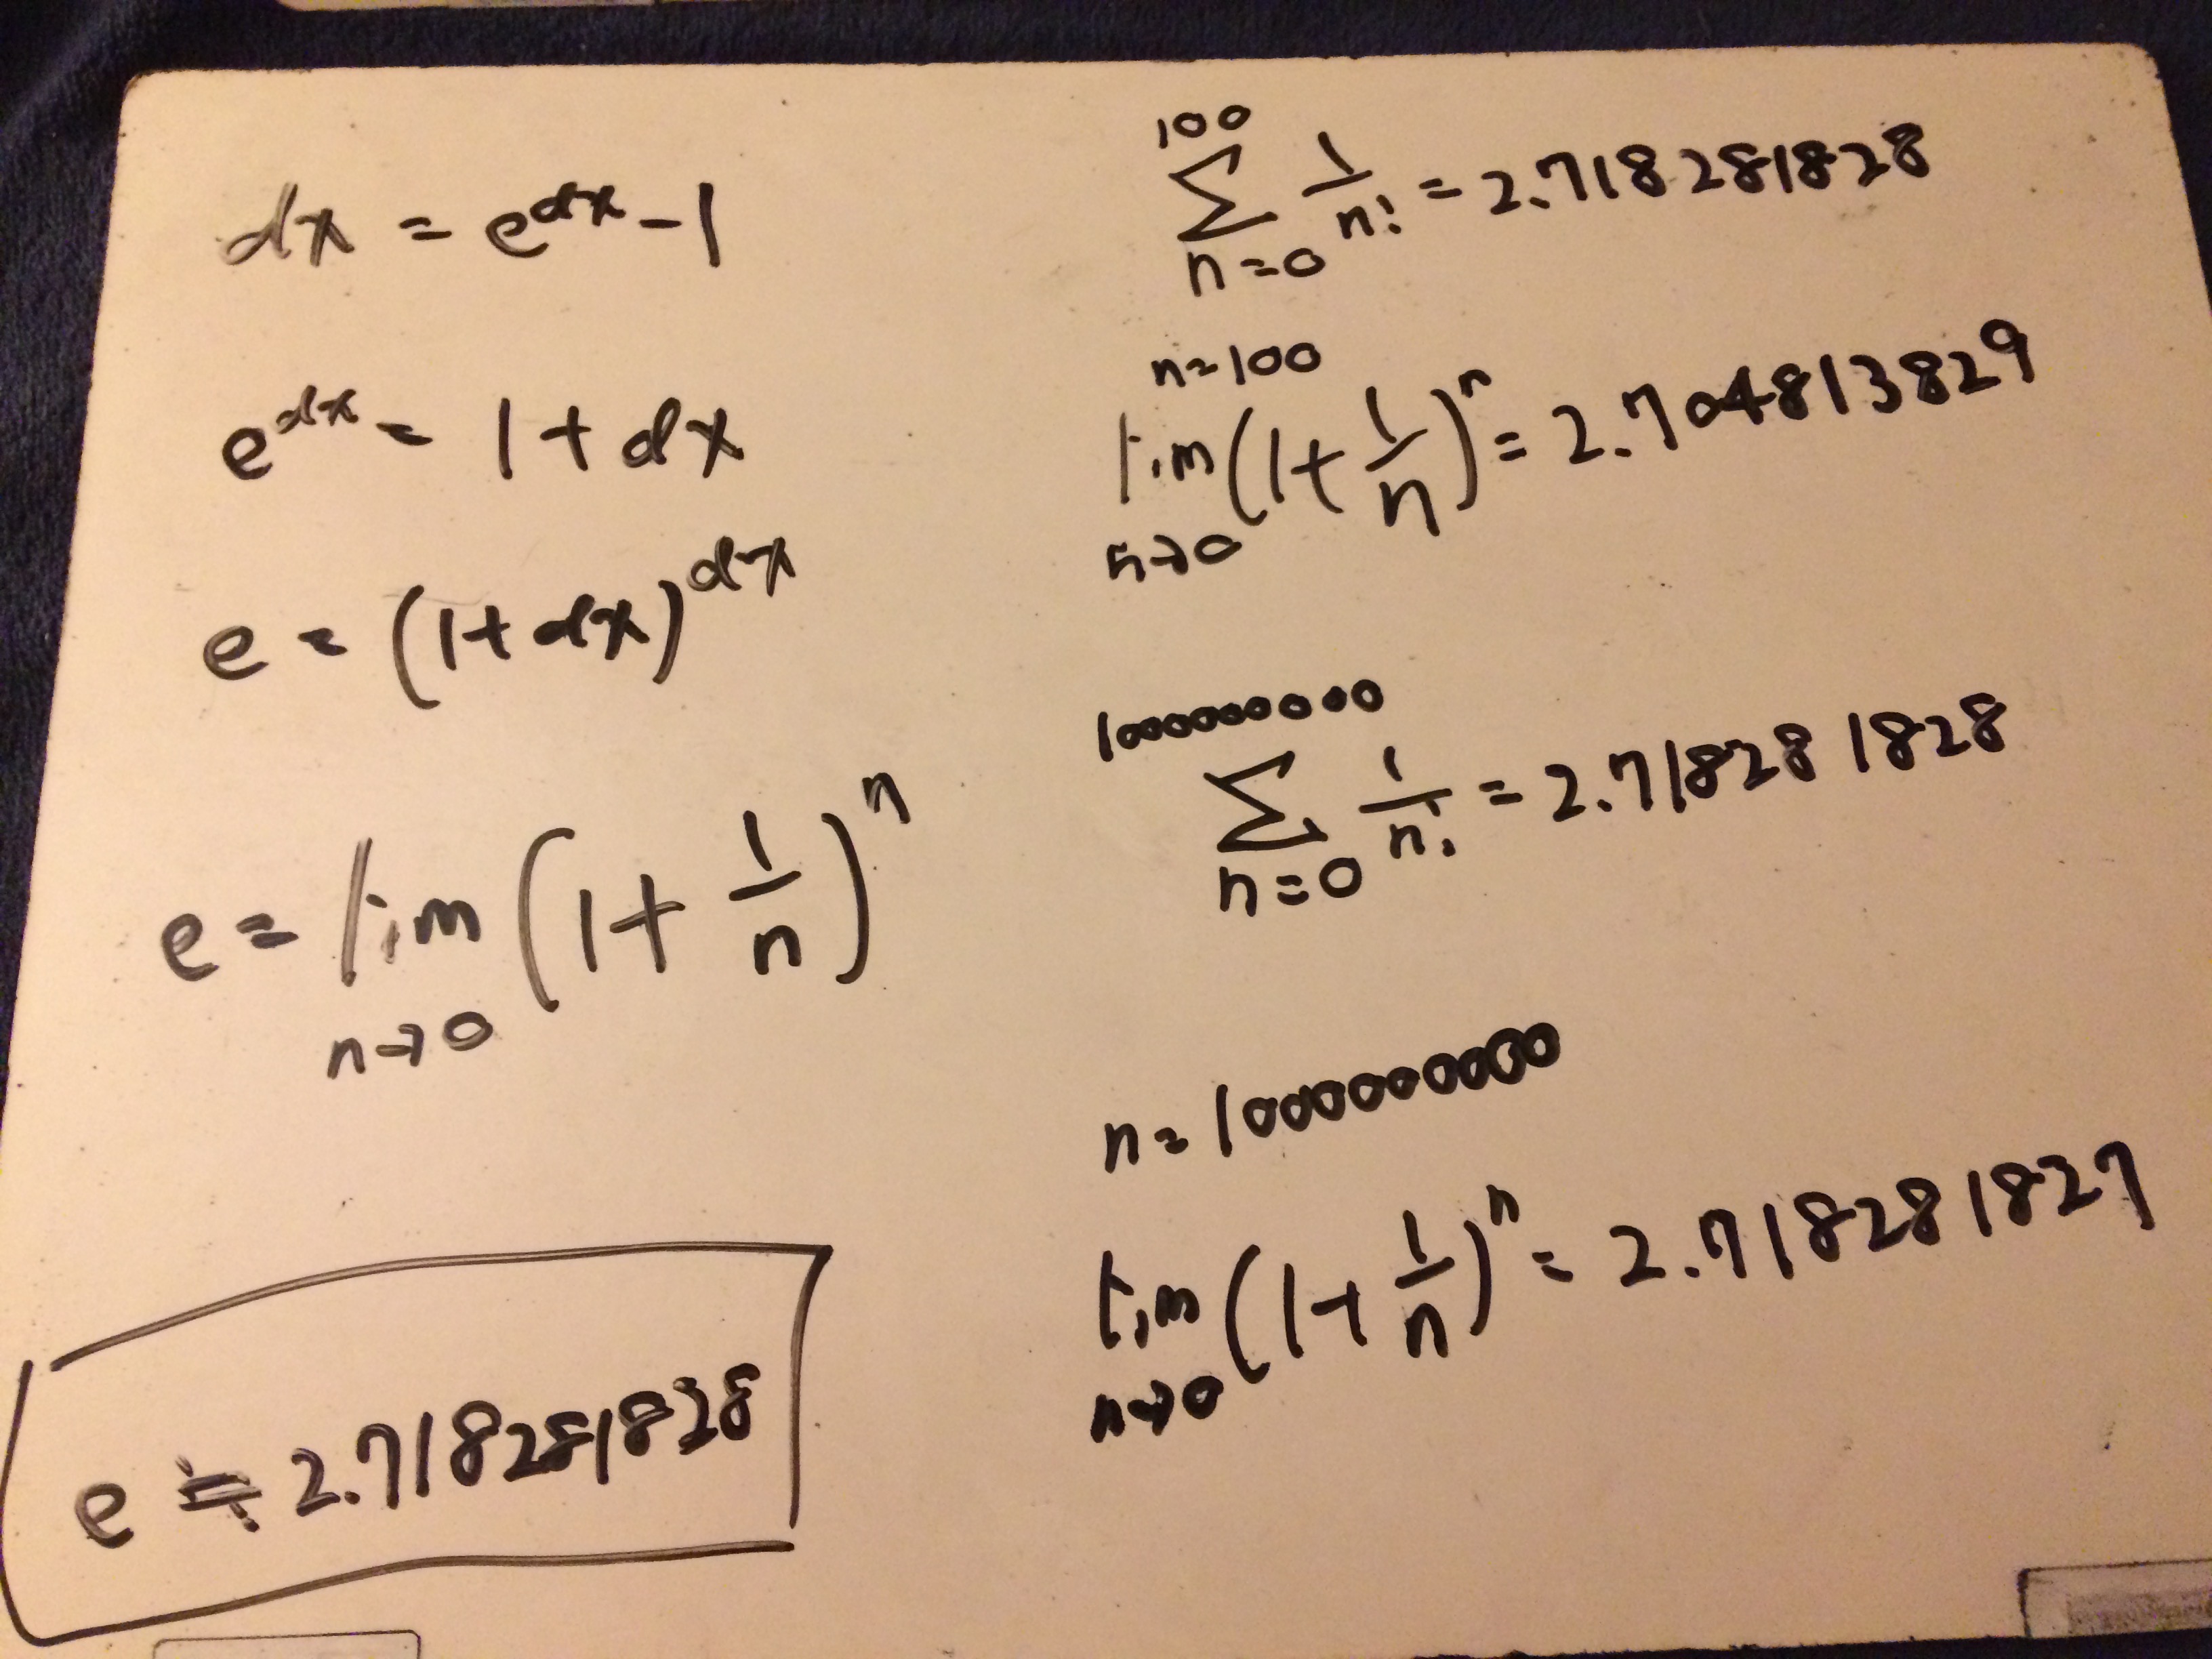 dx = e^dx - 1
e^dx = 1 + dx
e = (1 + dx)^dx
e = lim n→0 (1 + 1/n)^n
e ≒ 2.718281828
100 Σ n=0 1/n! = 2.718281828
n=100
lim n→0 (1 + 1/n)^n = 2.704813829
1000000000 Σ n=0 1/n! = 2.718281828
n=1000000000
lim n→0 (1 + 1/n)^n = 2.718281827